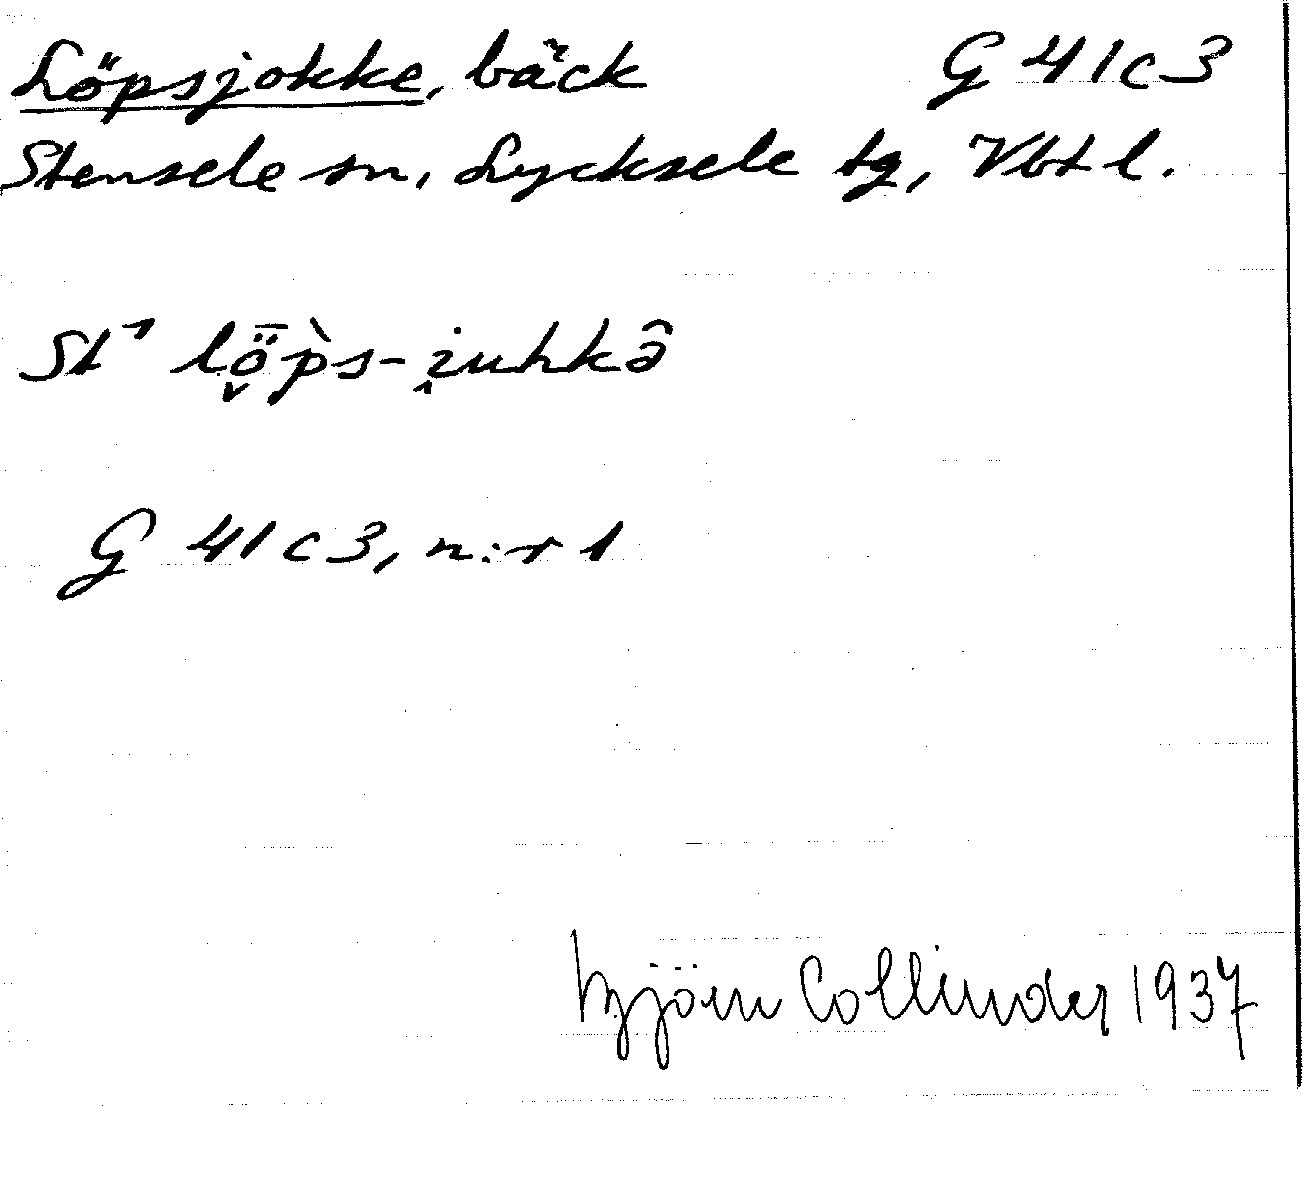 Löpsjokke, bäck G 41 c 3
Stensele sn, Lycksele tg, Vbt l.
St⁊ lȫ̬p̀s-i̭uhkə̂
G 41 c 3, n:r 1
Björn Collinder 1937